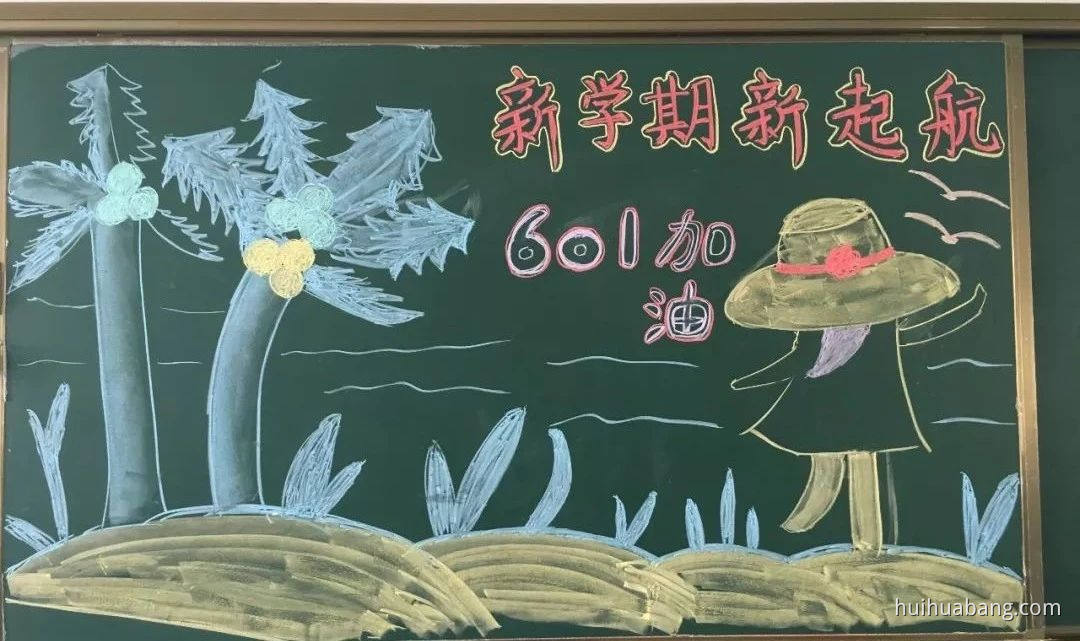 新学期新起航
601加
油
huihuabang.com